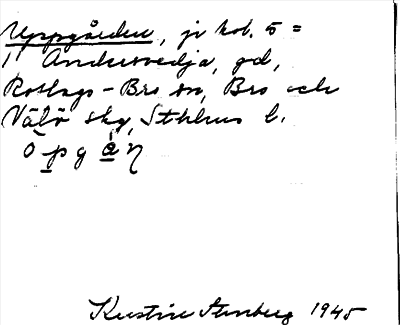 Uppgården, jr kol. 5 =
1) Andersvedja, gd,
Roslags-Bro sn, Bro och
Vätö skg, Sthlms l.
òp̲g á̲ŋ
Kerstin Stenberg 1945